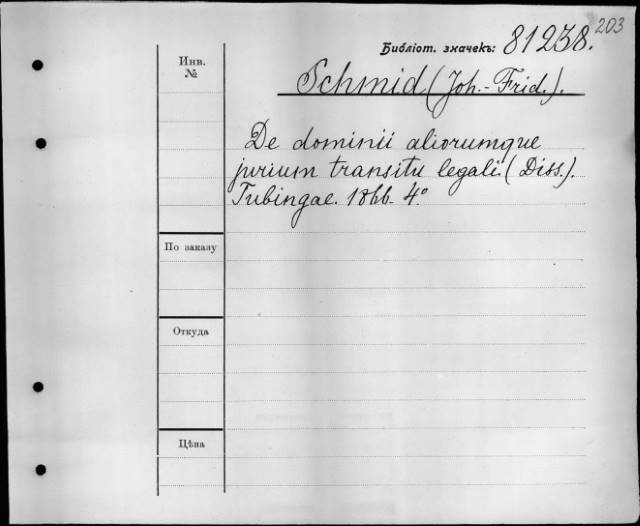 203
Библіот. значекъ: 81238.
Инв. №
Schmid (Joh.-Frid.).
De dominii aliorumque
jurium transitu legali. (Diss.).
Tubingae. 4°
По заказу
Откуда
Цѣна